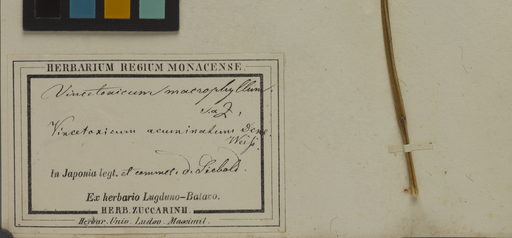 HERBARIUM REGIUM MONACENSE.
Vincetoxicum macrophyllum.
Vincetoxicum acuminatum Dcne.
In Japonia legt. et commc. d. Siebold.
Ex herbario Lugduno-Batavo.
HERB. ZUCCARINII.
Herbar. Univ. Ludov. Maximil.